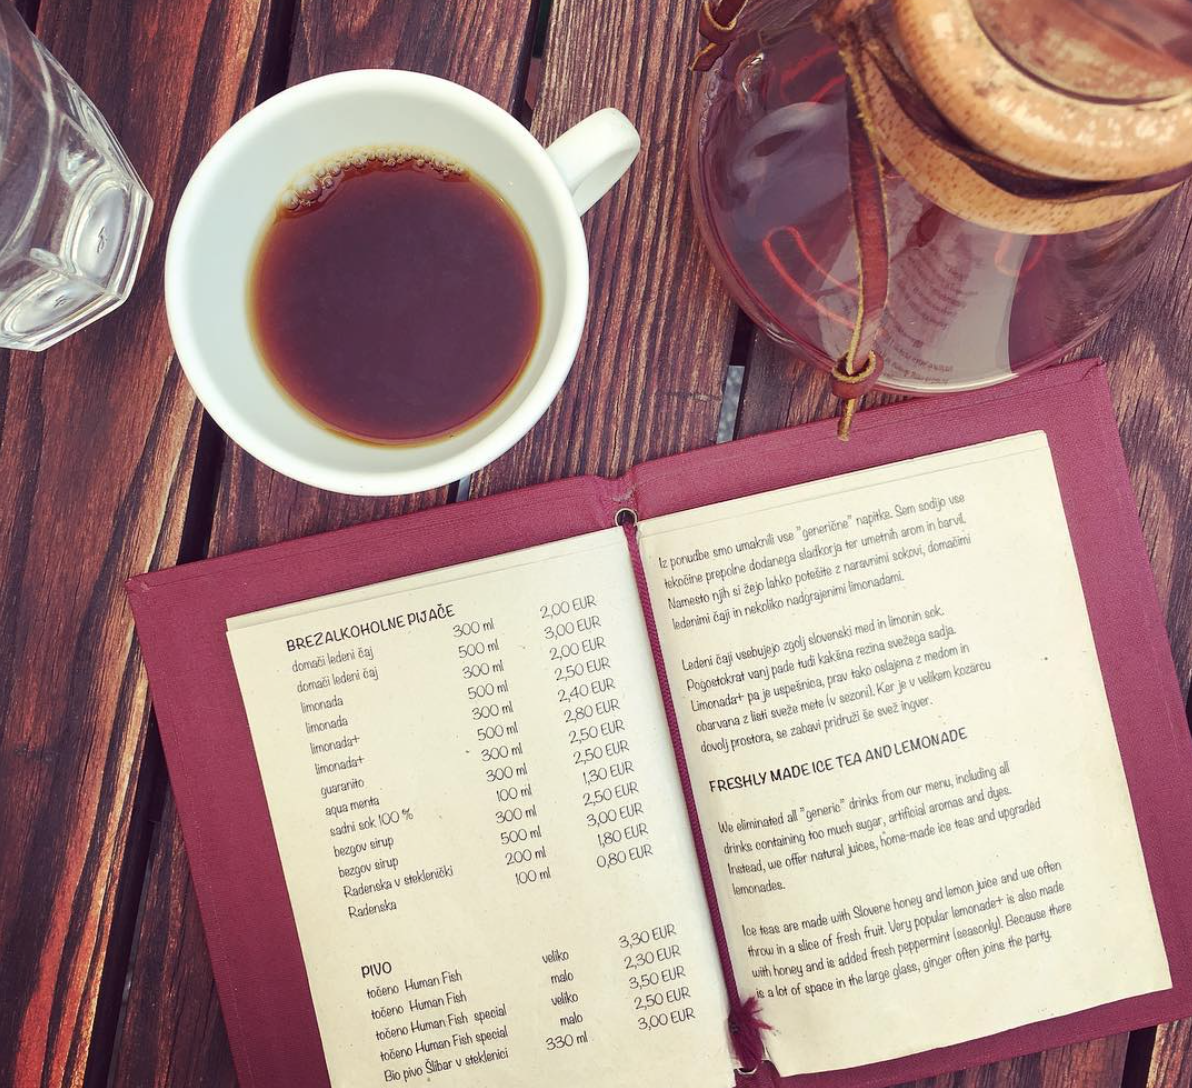 BREZALKOHOLNE PIJAČE
domači ledeni čaj 300 ml 2,00 EUR
domači ledeni čaj 500 ml 3,00 EUR
limonada 300 ml 2,00 EUR
limonada 500 ml 2,50 EUR
limonada+ 300 ml 2,40 EUR
limonada+ 500 ml 2,80 EUR
guaranito 300 ml 2,50 EUR
aqua menta 300 ml 2,50 EUR
sadni sok 100 % 100 ml 1,30 EUR
bezgov sirup 300 ml 2,50 EUR
bezgov sirup 500 ml 3,00 EUR
Radenska v steklenički 200 ml 1,80 EUR
Radenska 100 ml 0,80 EUR
PIVO
točeno Human Fish veliko 3,30 EUR
točeno Human Fish malo 2,30 EUR
točeno Human Fish special veliko 3,50 EUR
točeno Human Fish special malo 2,50 EUR
Bio pivo Šlibar v steklenici 330 ml 3,00 EUR
Iz ponudbe smo umaknili vse "generične" napitke. Sem sodijo vse
tekočine prepolne dodanega sladkorja ter umetnih arom in barvil.
Namesto njih si žejo lahko potešite z naravnimi sokovi, domačimi
ledenimi čaji in nekoliko nadgrajenimi limonadami.
Ledeni čaji vsebujejo zgolj slovenski med in limonin sok.
Pogostokrat vanj pade tudi kakšna rezina svežega sadja.
Limonada+ pa je uspešnica, prav tako oslajena z medom in
obarvana z listi sveže mete (v sezoni). Ker je v velikem kozarcu
dovolj prostora, se zabavi pridruži še svež ingver.
FRESHLY MADE ICE TEA AND LEMONADE
We eliminated all "generic" drinks from our menu, including all
drinks containing too much sugar, artificial aromas and dyes.
Instead, we offer natural juices, home-made ice teas and upgraded
lemonades.
Ice teas are made with Slovene honey and lemon juice and we often
throw in a slice of fresh fruit. Very popular lemonade+ is also made
with honey and is added fresh peppermint (seasonly). Because there
is a lot of space in the large glass, ginger often joins the party.